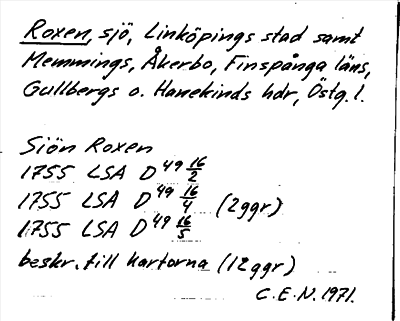 Roxen, sjö, Linköpings stad samt
Memmings, Åkerbo, Finspånga läns,
Gullbergs o. Hanekinds hdr, Östg. l.
Sjön Roxen
1755 LSA D 49 16/2
1755 LSA D 49 16/4 (2ggr)
1755 LSA D 49 16/5
beskr. till kartorna (12ggr)
C.E.N. 1971.